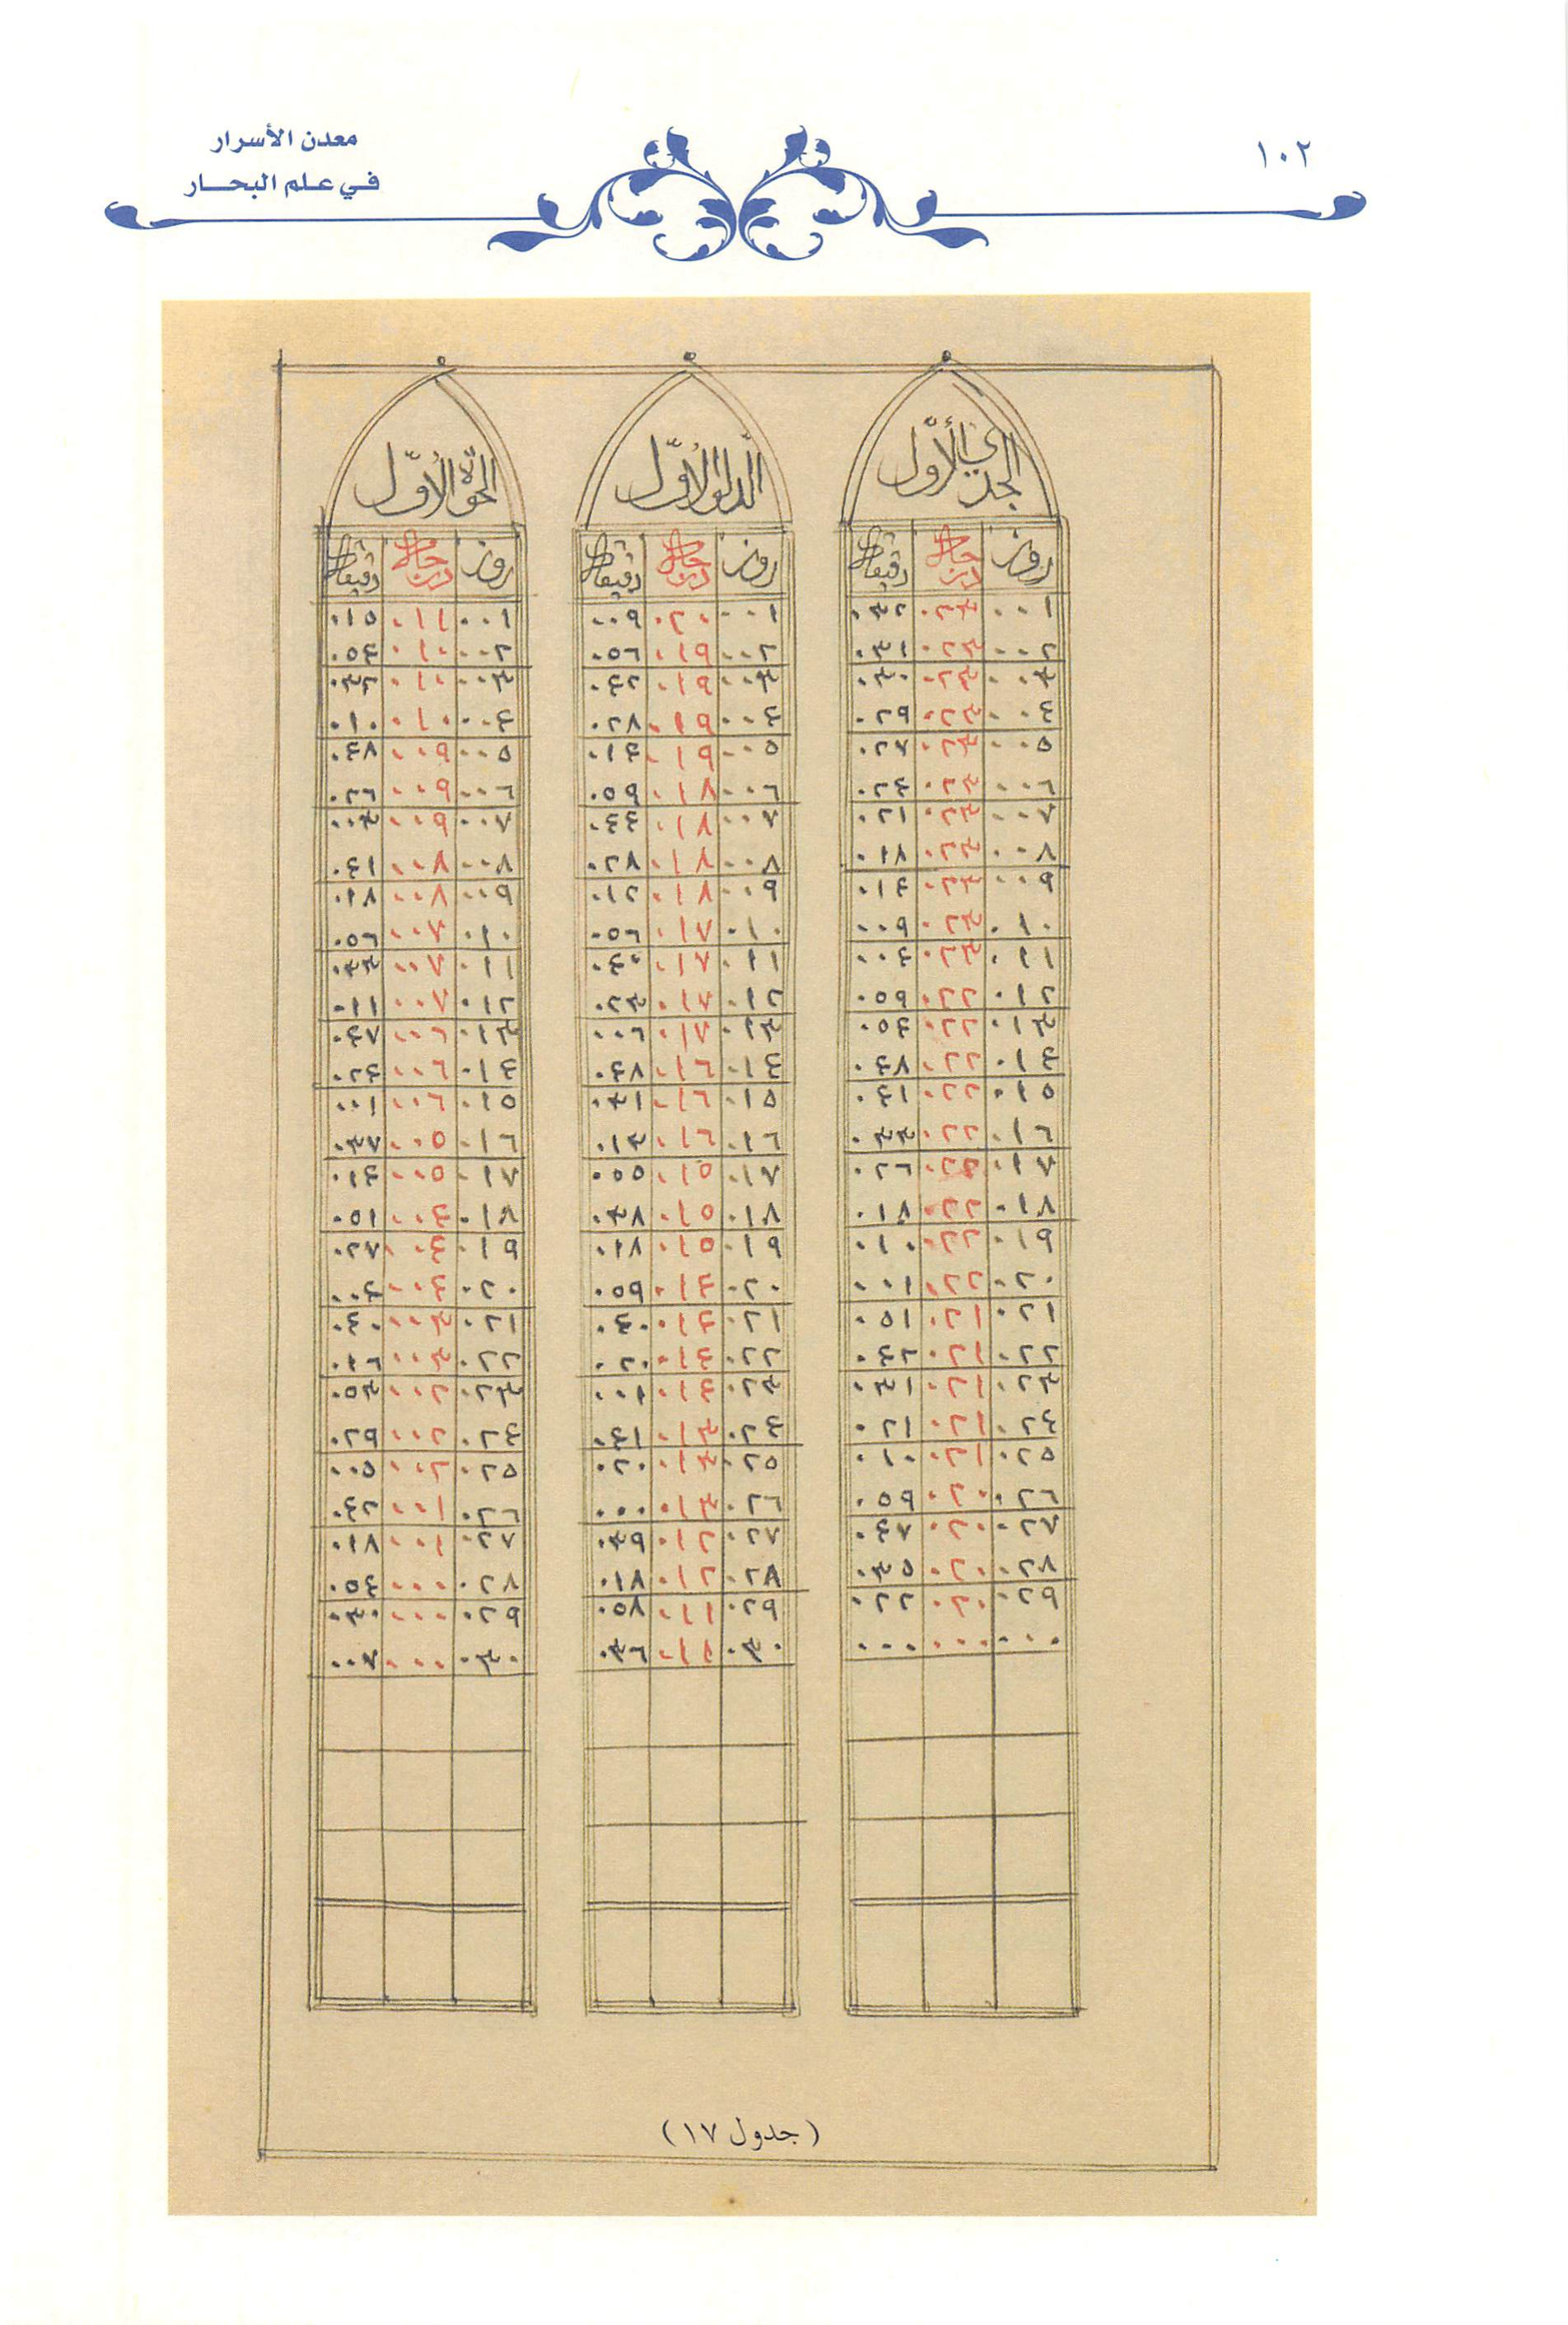 ١٠٢
معدن الأسرار
في علم البحـار
الجدي الأوّل
روز درجات دقيقات
٠٠١ ٠٢٣ ٠٣٢
٠٠٢ ٠٢٣ ٠٣١
٠٠٣ ٠٢٣ ٠٣٠
٠٠٤ ٠٢٣ ٠٢٩
٠٠٥ ٠٢٣ ٠٢٧
٠٠٦ ٠٢٣ ٠٢٤
٠٠٧ ٠٢٣ ٠٢١
٠٠٨ ٠٢٣ ٠١٨
٠٠٩ ٠٢٣ ٠١٤
٠١٠ ٠٢٣ ٠٠٩
٠١١ ٠٢٣ ٠٠٤
٠١٢ ٠٢٢ ٠٥٩
٠١٣ ٠٢٢ ٠٥٤
٠١٤ ٠٢٢ ٠٤٨
٠١٥ ٠٢٢ ٠٤١
٠١٦ ٠٢٢ ٠٣٣
٠١٧ ٠٢٢ ٠٢٦
٠١٨ ٠٢٢ ٠١٨
٠١٩ ٠٢٢ ٠١٠
٠٢٠ ٠٢٢ ٠٠١
٠٢١ ٠٢١ ٠٥١
٠٢٢ ٠٢١ ٠٤٢
٠٢٣ ٠٢١ ٠٣١
٠٢٤ ٠٢١ ٠٢١
٠٢٥ ٠٢١ ٠١٠
٠٢٦ ٠٢٠ ٠٥٩
٠٢٧ ٠٢٠ ٠٤٧
٠٢٨ ٠٢٠ ٠٣٥
٠٢٩ ٠٢٠ ٠٢٢
٠٠٠ ٠٠٠ ٠٠٠
الدلو الأوّل
روز درجات دقيقات
٠٠١ ٠٢٠ ٠٠٩
٠٠٢ ٠١٩ ٠٥٦
٠٠٣ ٠١٩ ٠٤٢
٠٠٤ ٠١٩ ٠٢٨
٠٠٥ ٠١٩ ٠١٤
٠٠٦ ٠١٨ ٠٥٩
٠٠٧ ٠١٨ ٠٤٤
٠٠٨ ٠١٨ ٠٢٨
٠٠٩ ٠١٨ ٠١٢
٠١٠ ٠١٧ ٠٥٦
٠١١ ٠١٧ ٠٤٠
٠١٢ ٠١٧ ٠٢٣
٠١٣ ٠١٧ ٠٠٦
٠١٤ ٠١٦ ٠٤٨
٠١٥ ٠١٦ ٠٣١
٠١٦ ٠١٦ ٠١٣
٠١٧ ٠١٥ ٠٥٥
٠١٨ ٠١٥ ٠٣٨
٠١٩ ٠١٥ ٠١٨
٠٢٠ ٠١٤ ٠٥٩
٠٢١ ٠١٤ ٠٤٠
٠٢٢ ٠١٤ ٠٢٠
٠٢٣ ٠١٤ ٠٠١
٠٢٤ ٠١٣ ٠٤١
٠٢٥ ٠١٣ ٠٢٠
٠٢٦ ٠١٣ ٠٠٠
٠٢٧ ٠١٢ ٠٣٩
٠٢٨ ٠١٢ ٠١٨
٠٢٩ ٠١١ ٠٥٨
٠٣٠ ٠١١ ٠٣٦
الحوة الأوّل
روز درجات دقيقات
٠٠١ ٠١١ ٠١٥
٠٠٢ ٠١٠ ٠٥٤
٠٠٣ ٠١٠ ٠٣٢
٠٠٤ ٠١٠ ٠١٠
٠٠٥ ٠٠٩ ٠٤٨
٠٠٦ ٠٠٩ ٠٢٦
٠٠٧ ٠٠٩ ٠٠٣
٠٠٨ ٠٠٨ ٠٤١
٠٠٩ ٠٠٨ ٠١٨
٠١٠ ٠٠٧ ٠٥٦
٠١١ ٠٠٧ ٠٣٣
٠١٢ ٠٠٧ ٠١١
٠١٣ ٠٠٦ ٠٤٧
٠١٤ ٠٠٦ ٠٢٤
٠١٥ ٠٠٦ ٠٠١
٠١٦ ٠٠٥ ٠٣٧
٠١٧ ٠٠٥ ٠١٤
٠١٨ ٠٠٤ ٠٥١
٠١٩ ٠٠٤ ٠٢٧
٠٢٠ ٠٠٤ ٠٠٤
٠٢١ ٠٠٣ ٠٤٠
٠٢٢ ٠٠٣ ٠١٦
٠٢٣ ٠٠٢ ٠٥٣
٠٢٤ ٠٠٢ ٠٢٩
٠٢٥ ٠٠٢ ٠٠٥
٠٢٦ ٠٠١ ٠٤٢
٠٢٧ ٠٠١ ٠١٨
٠٢٨ ٠٠٠ ٠٥٤
٠٢٩ ٠٠٠ ٠٣٠
٠٣٠ ٠٠٠ ٠٠٧
(جدول ١٧)